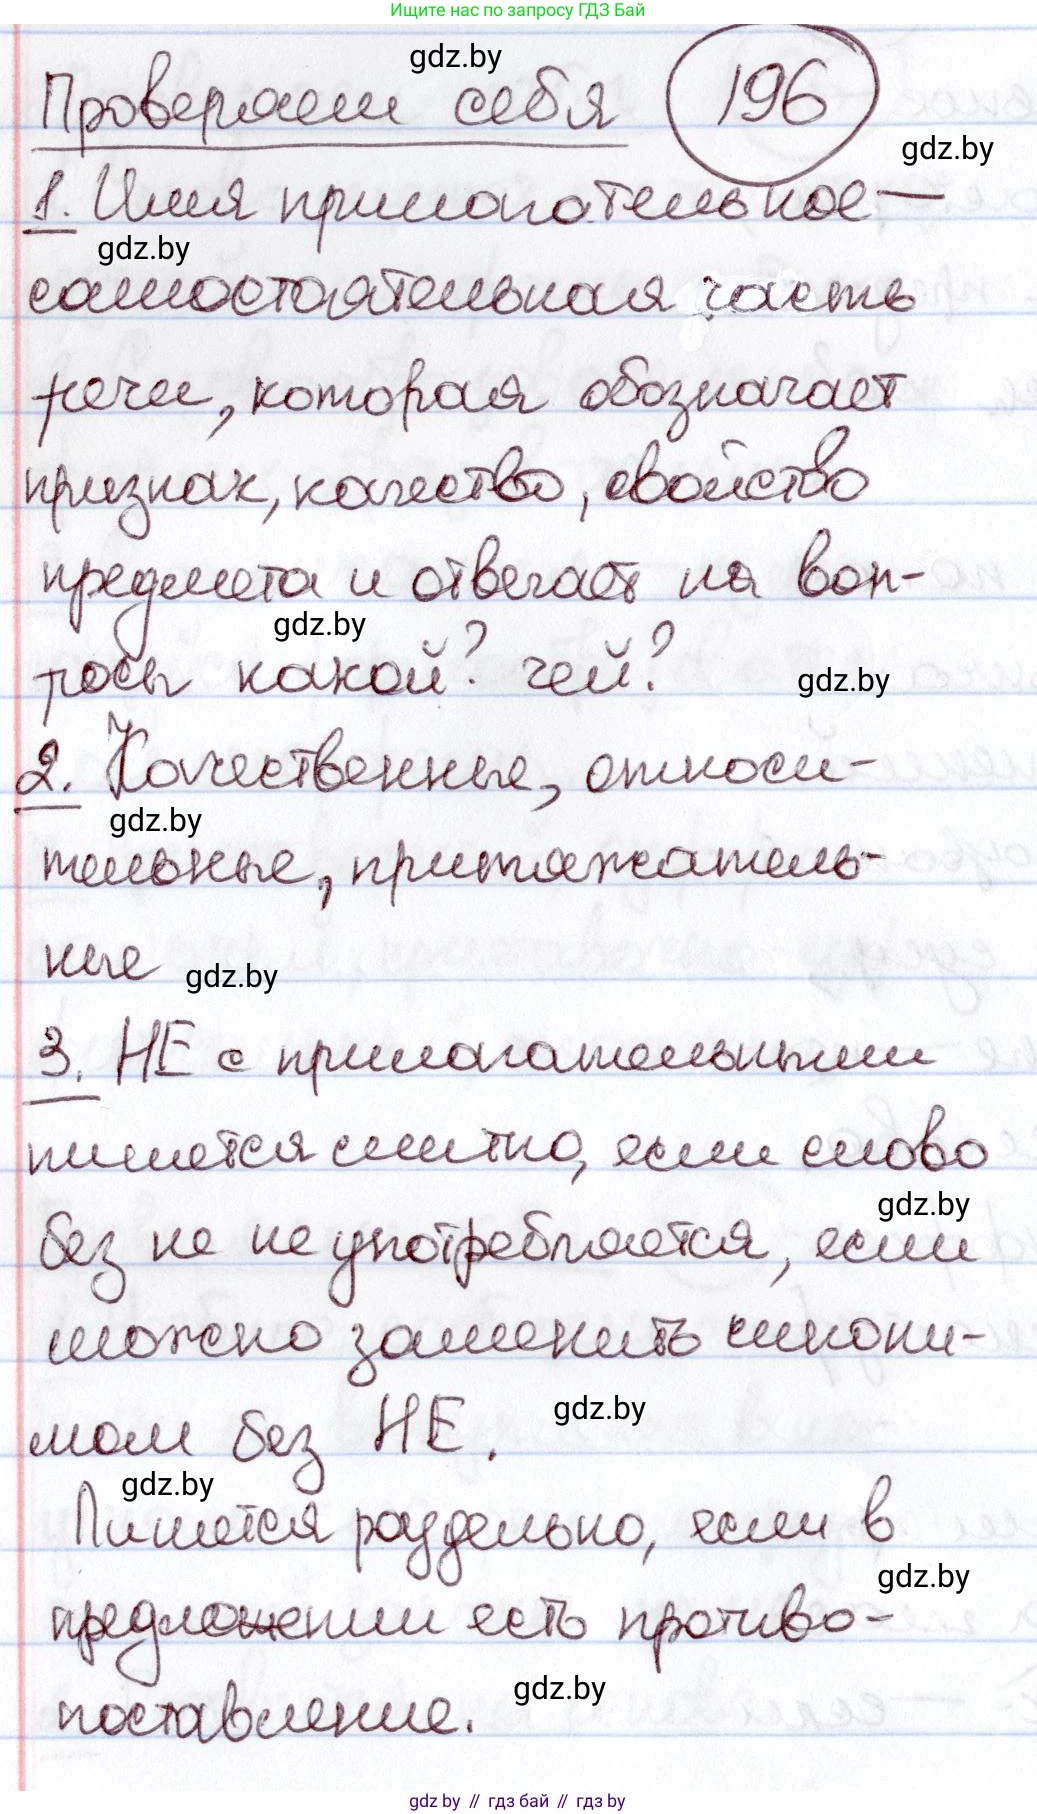 Ищите нас по запросу ГДЗ Бай
gdz.by
Проверяем себя 196
gdz.by
1. Имя прилагательное —
gdz.by
самостоятельная часть
речи, которая обозначает
признак, качество, свойство
предмета и отвечает на воп-
gdz.by
росы какой? чей?
gdz.by
2. Качественные, относи-
gdz.by
тельные, притяжатель-
ные
gdz.by
3. НЕ с прилагательными
пишется слитно, если слово
gdz.by
без не не употребляется, если
можно заменить синони-
gdz.by
мом без НЕ.
gdz.by
Пишется раздельно, если в
gdz.by
предложении есть противо-
gdz.by
поставление.
gdz.by // гдз бай // gdz.by